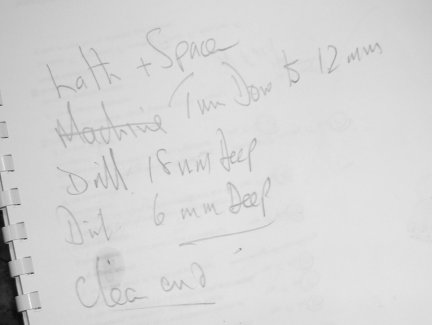 Lath + Space
Machine 1mm Down to 12 mm
Drill 18 mm Deep
6 mm Deep
Clean end